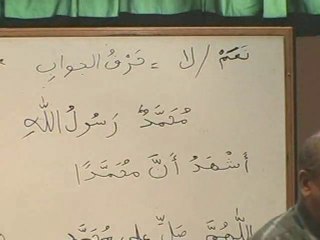 نَعَمْ / لا = حَرْفُ الجوابِ
مُحَمَّدٌ رَسُولُ اللهِ
أَشْهَدُ أَنَّ مُحَمَّدًا
اللَّهُمَّ صَلِّ على مُحَمَّد